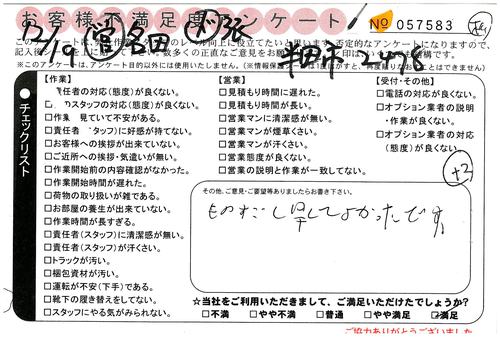 お客様不満足度アンケート
No 057583
※このアンケートは、アンケート目的以外には使用いたしません。
チェックリスト
【作業】
任者の対応(態度)が良くない。
のスタッフの対応(態度)が良くない。
□作業 見ていて不安がある。
□責任者 スタッフ)に好感が持てない。
□お客様への挨拶が出来ていない。
□ご近所への挨拶・気遣いが無い。
□作業開始前の内容確認がなかった。
□作業開始時間が遅れた。
□荷物の取り扱いが雑である。
□お部屋の養生が出来ていない。
□作業時間が長すぎる。
□責任者(スタッフ)に清潔感が無い。
□責任者(スタッフ)が汗くさい。
□トラックが汚い。
□梱包資材が汚い。
□運転が不安(下手)である。
□靴下の履き替えをしてない。
□スタッフにやる気がみられない。
【営業】
□見積もり時間に遅れた。
□見積もり時間が長い。
□営業マンに清潔感が無い。
□営業マンが煙草くさい。
□営業マンが汗くさい。
□営業態度が良くない。
□営業の説明と作業が一致してない。
【受付・その他】
□電話の対応が良くない。
□オプション業者の説明
・作業が良くない。
□オプション業者の対応
(態度)が良くない。
+2
その他、ご意見・ご要望等ありましたらお書き下さい。
ものすごく早くてよかったです
☆当社をご利用いただきまして、ご満足いただけたでしょうか?
□不満 □やや不満 □普通 □やや満足 □満足
ご協力ありがとうございました